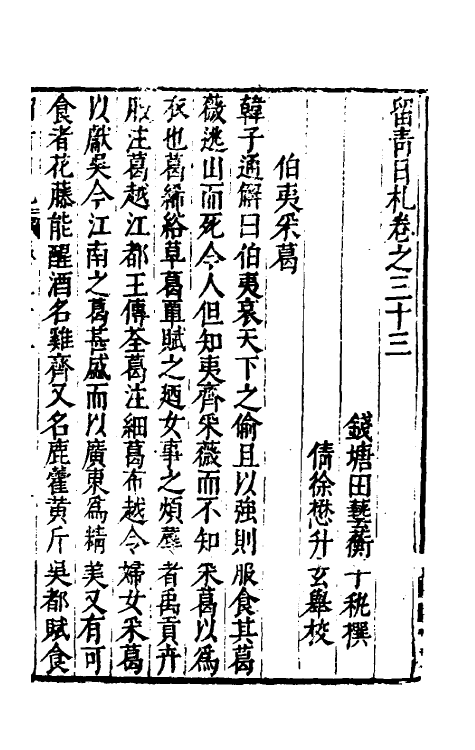 留青日札卷之三十三
錢塘田藝蘅子秇撰
倩徐懋升玄舉校
伯夷采葛
韓子通解曰伯夷哀天下之偷且以強則服食其葛
薇逃山而死今人但知夷齊采薇而不知采葛以爲
衣也葛絺綌草葛覃賦之廼女事之煩蓐者禹貢卉
服注葛越江都王傳荃葛注細葛布越令婦女采葛
以獻吳今江南之葛甚盛而以廣東爲精美又有可
食者花藤能醒酒名雞齊又名鹿藿黃斤吳都賦食